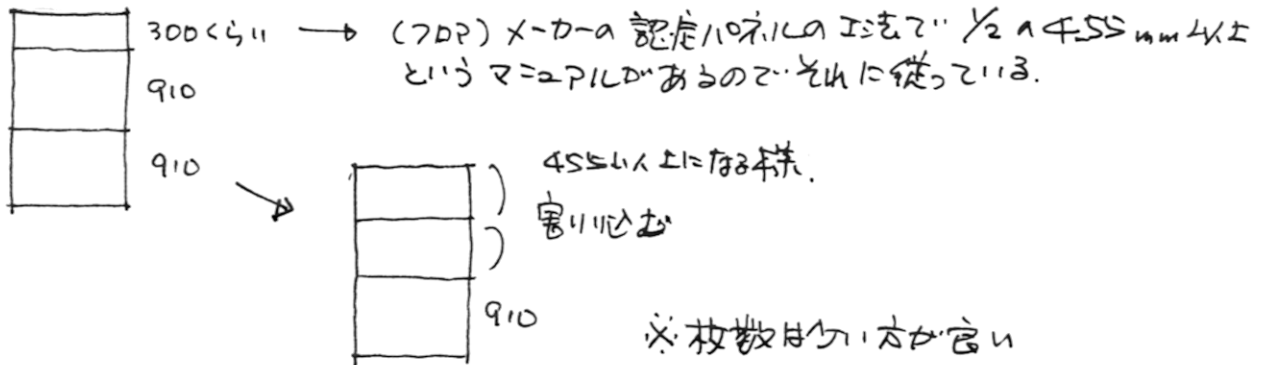 300くらい → (フロア)メーカーの認定パネルの工法で 1/2の455mm以上
というマニュアルがあるのでそれに従っている.
910
910
455以上になる様.
割り込む
910
※枚数は少い方が良い